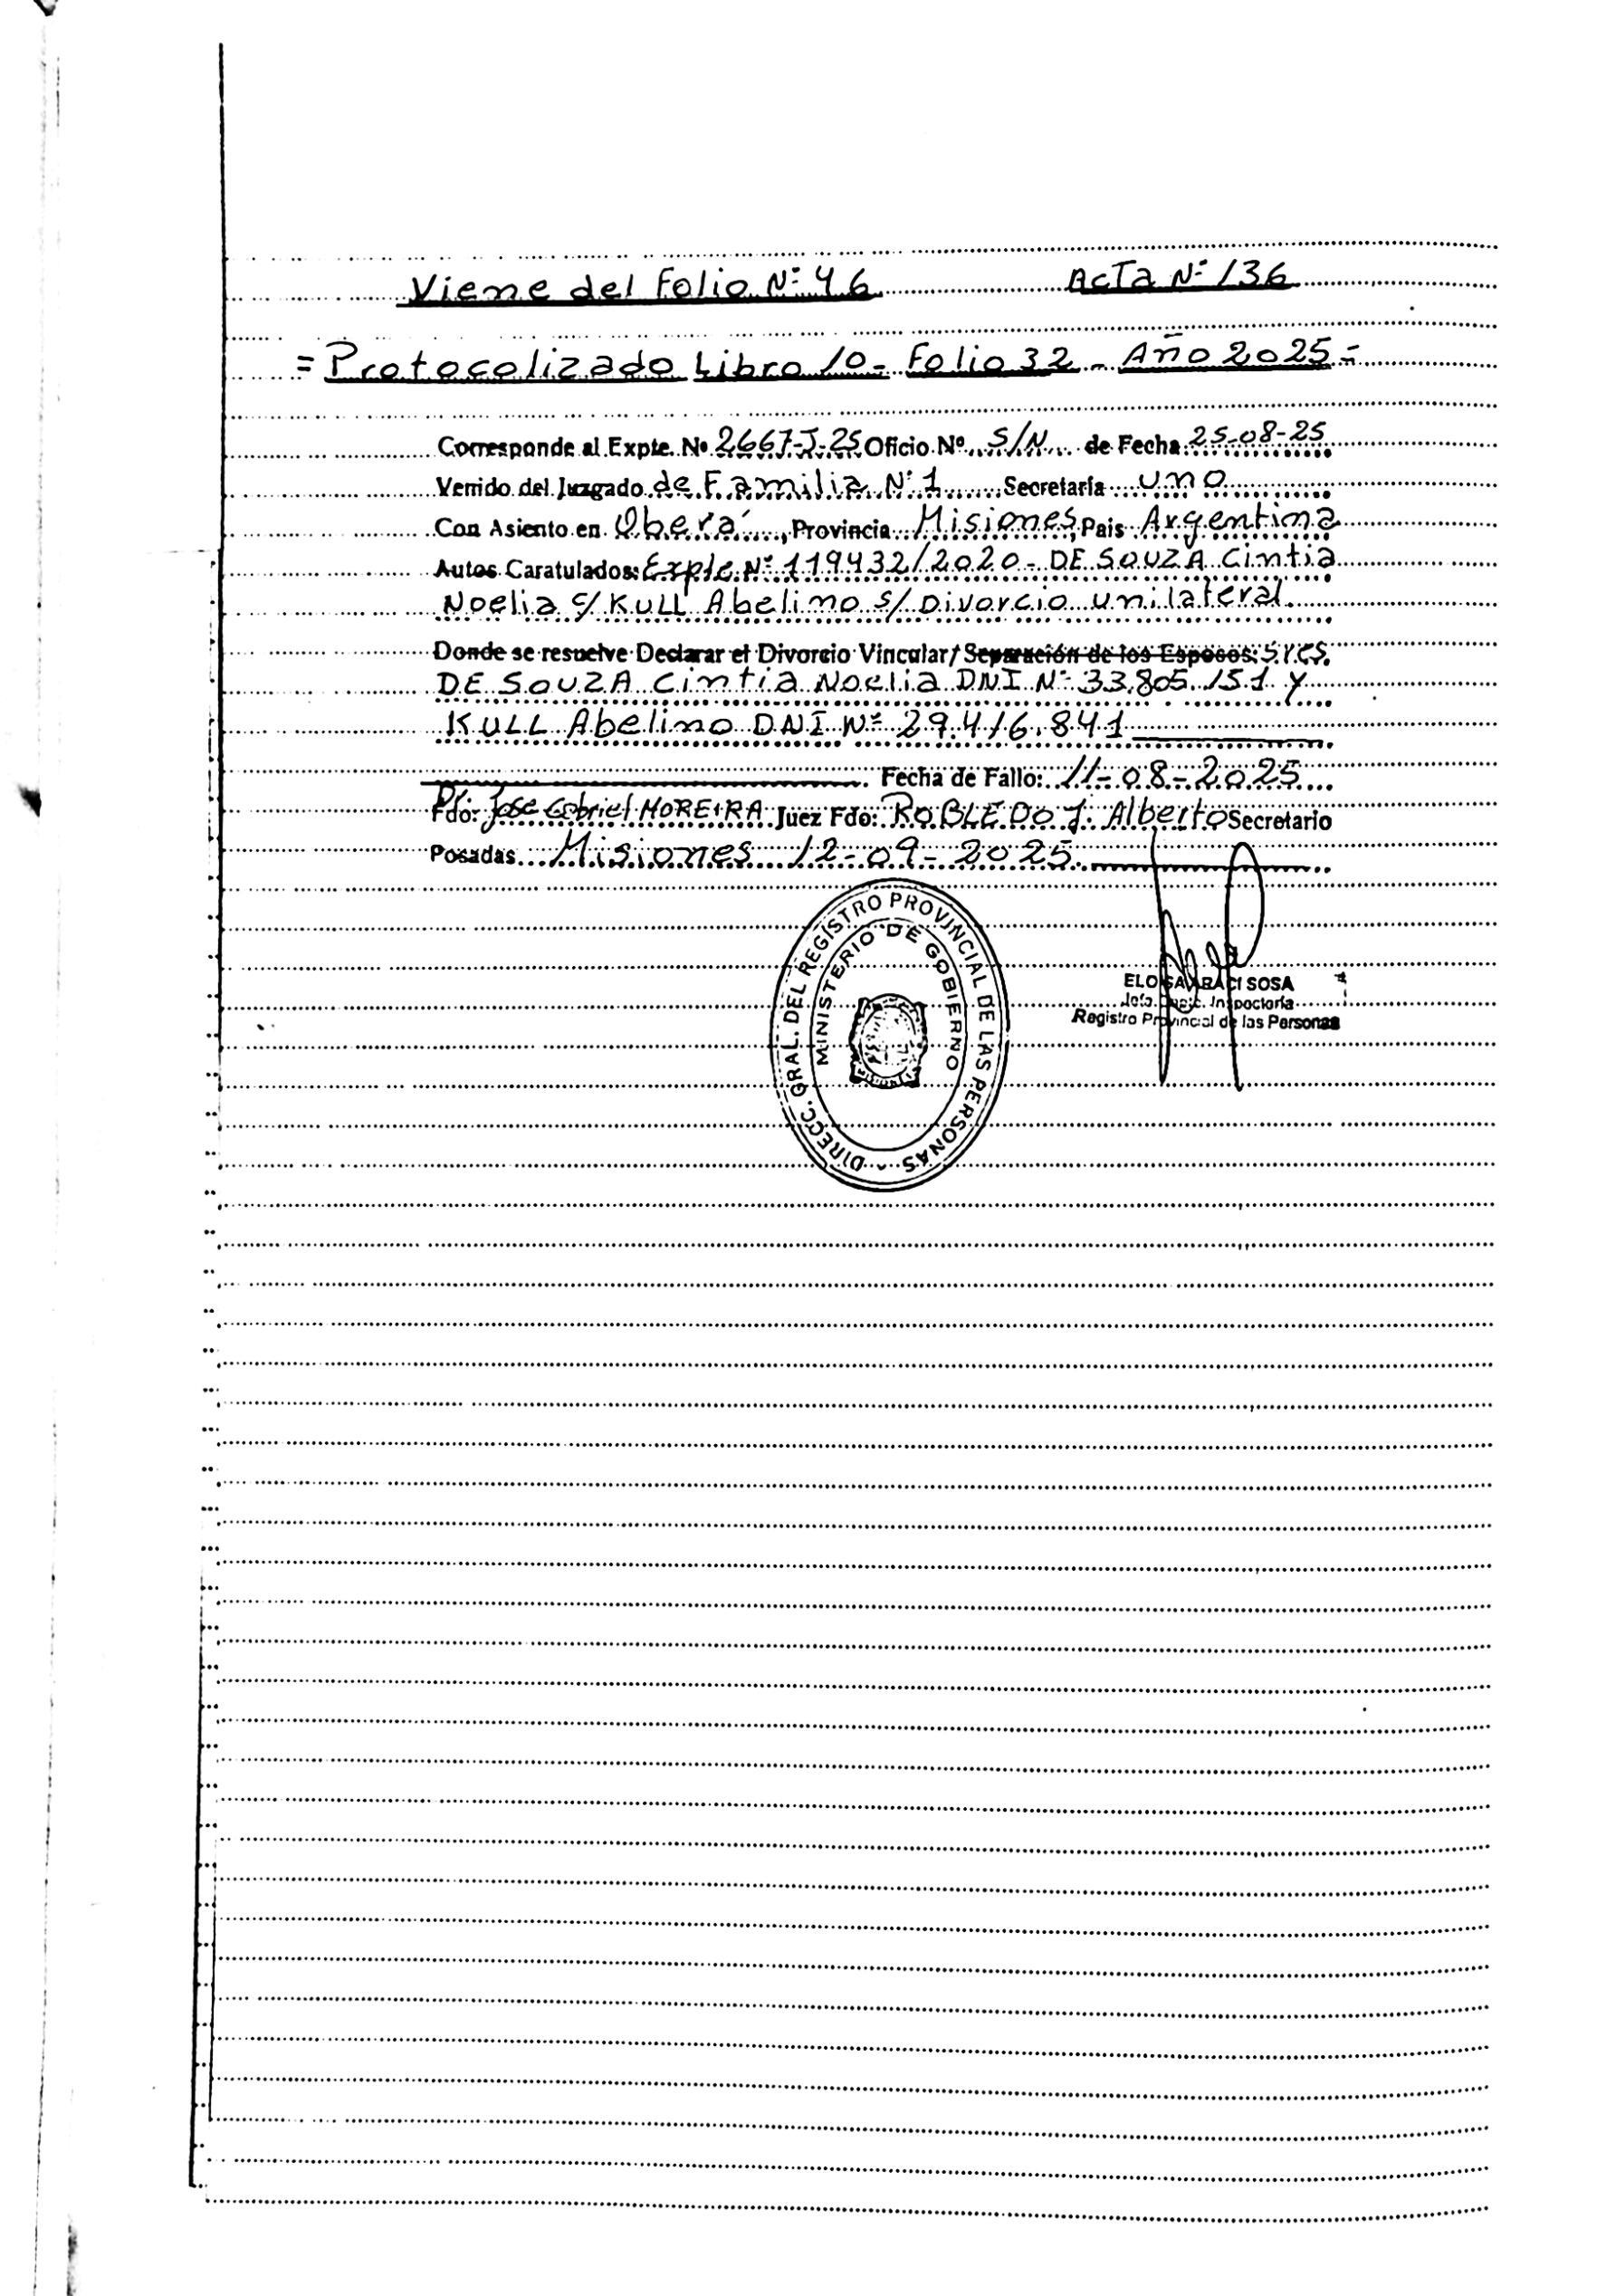 Viene del Folio Nº 46 Acta Nº 136
= Protocolizado Libro 10 - Folio 32 - Año 2025 =
Corresponde al Expte. Nº 2667-J-25 Oficio Nº S/N de Fecha 25-08-25
Venido del Juzgado de Familia Nº 1 Secretaría uno
Con Asiento en Oberá, Provincia Misiones, Pais Argentina
Autos Caratulados: Expte. Nº 119432/2020 - DE SOUZA Cintia
Noelia c/ KULL Abelino s/ Divorcio unilateral.
Donde se resuelve Declarar el Divorcio Vincular/ Separación de los Esposos: Sres.
DE SOUZA Cintia Noelia DNI Nº 33.805.151 y
KULL Abelino DNI Nº 29.416.841
Fecha de Fallo: 11-08-2025
Fdo: Jose Gabriel MOREIRA Juez Fdo: ROBLEDO J. Alberto Secretario
Posadas Misiones 12-09-2025.
DIRECC. GRAL. DEL REGISTRO PROVINCIAL DE LAS PERSONAS
MINISTERIO DE GOBIERNO
MISIONES
ELOISA ARACI SOSA
Jefa Dpto. Inspectoría
Registro Provincial de las Personas